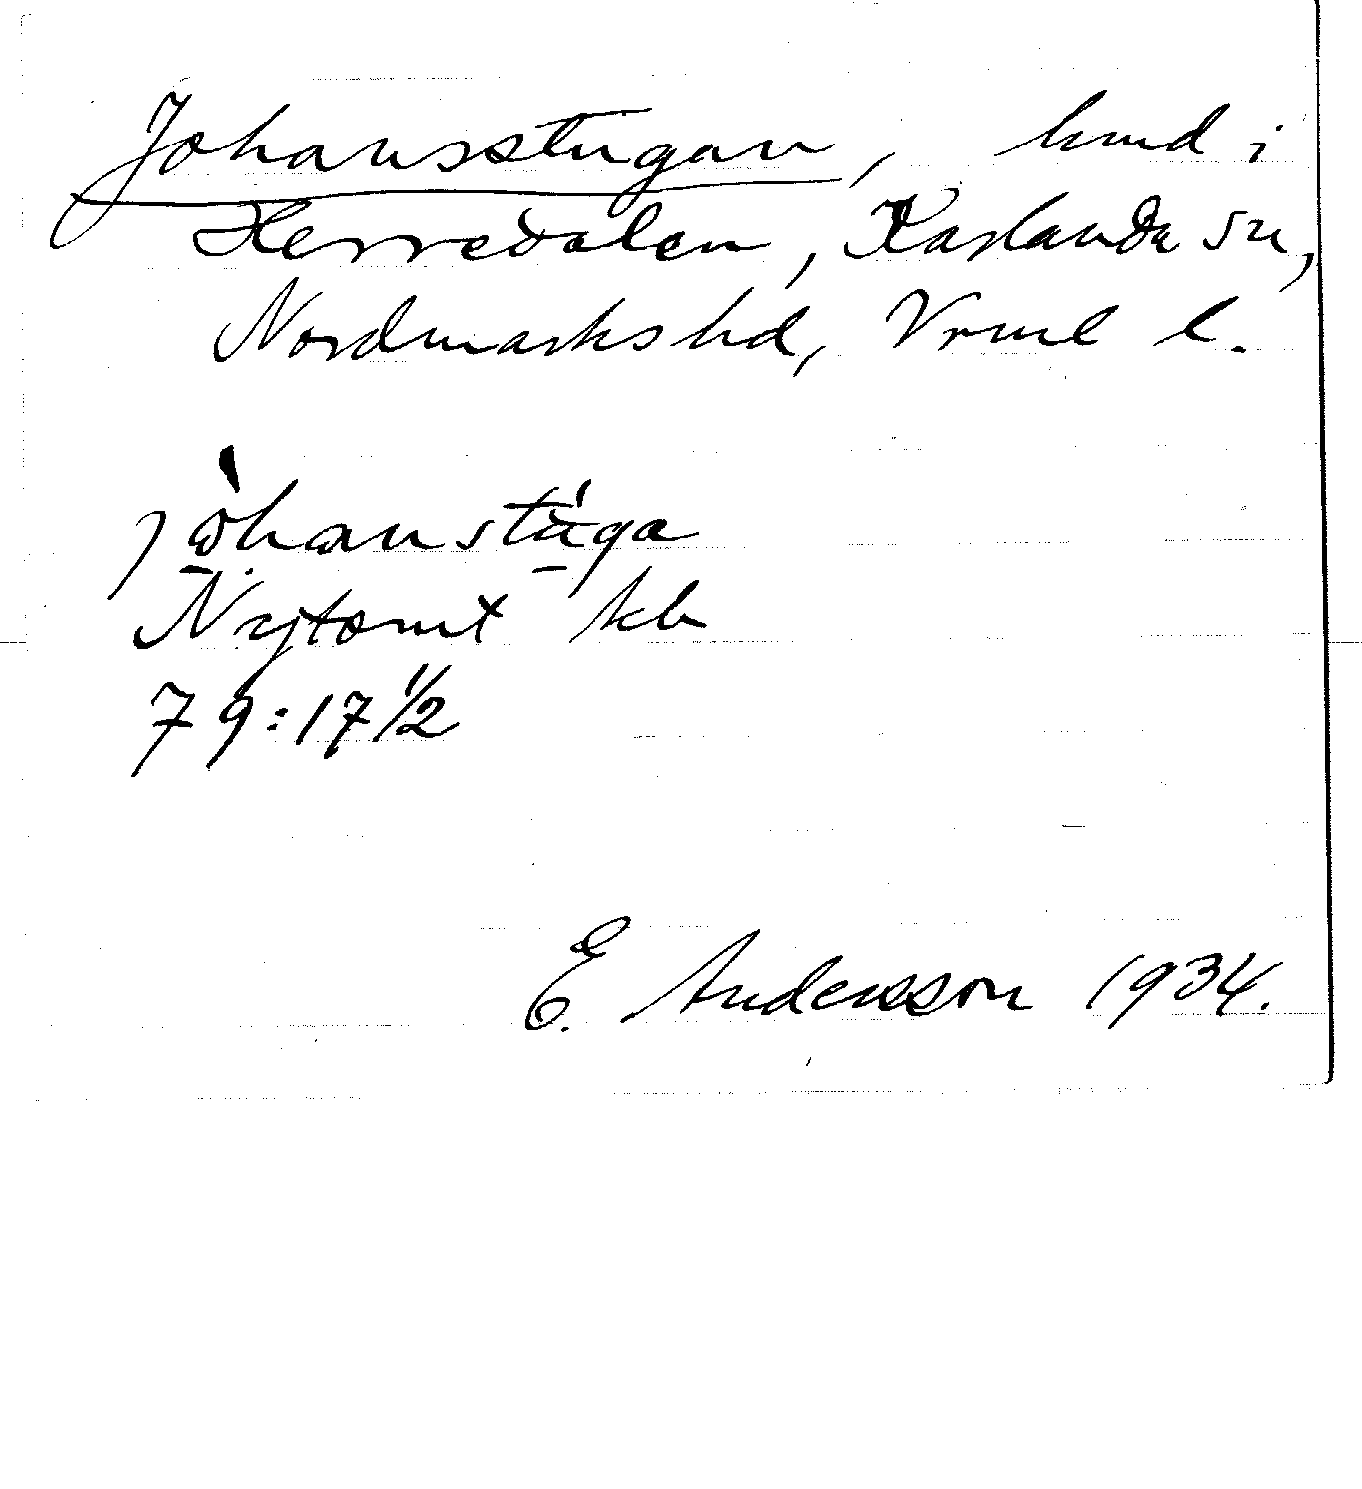 Johansstugan, hmd i
Herredalen, Karlanda sn,
Nordmarks hd, Vrml l.
jòhanstùga
Nytomt kb
79:17½
E. Andersson 1934.